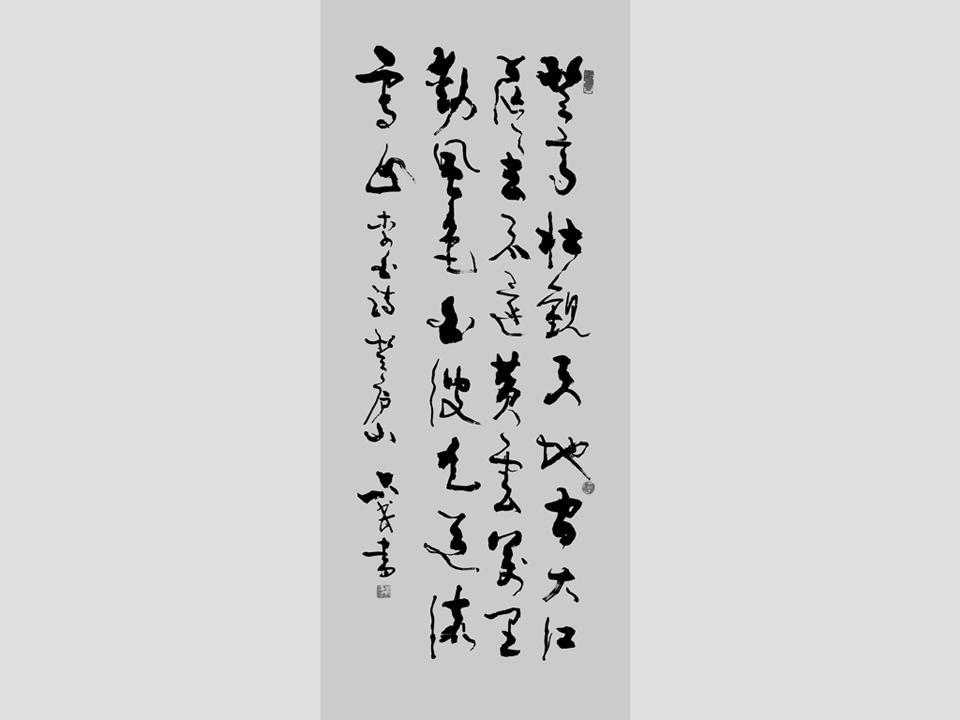 登高壯觀天地間大江
茫茫去不還黃雲萬里
動風色白波九道流
雪山 李白詩登庐山 書